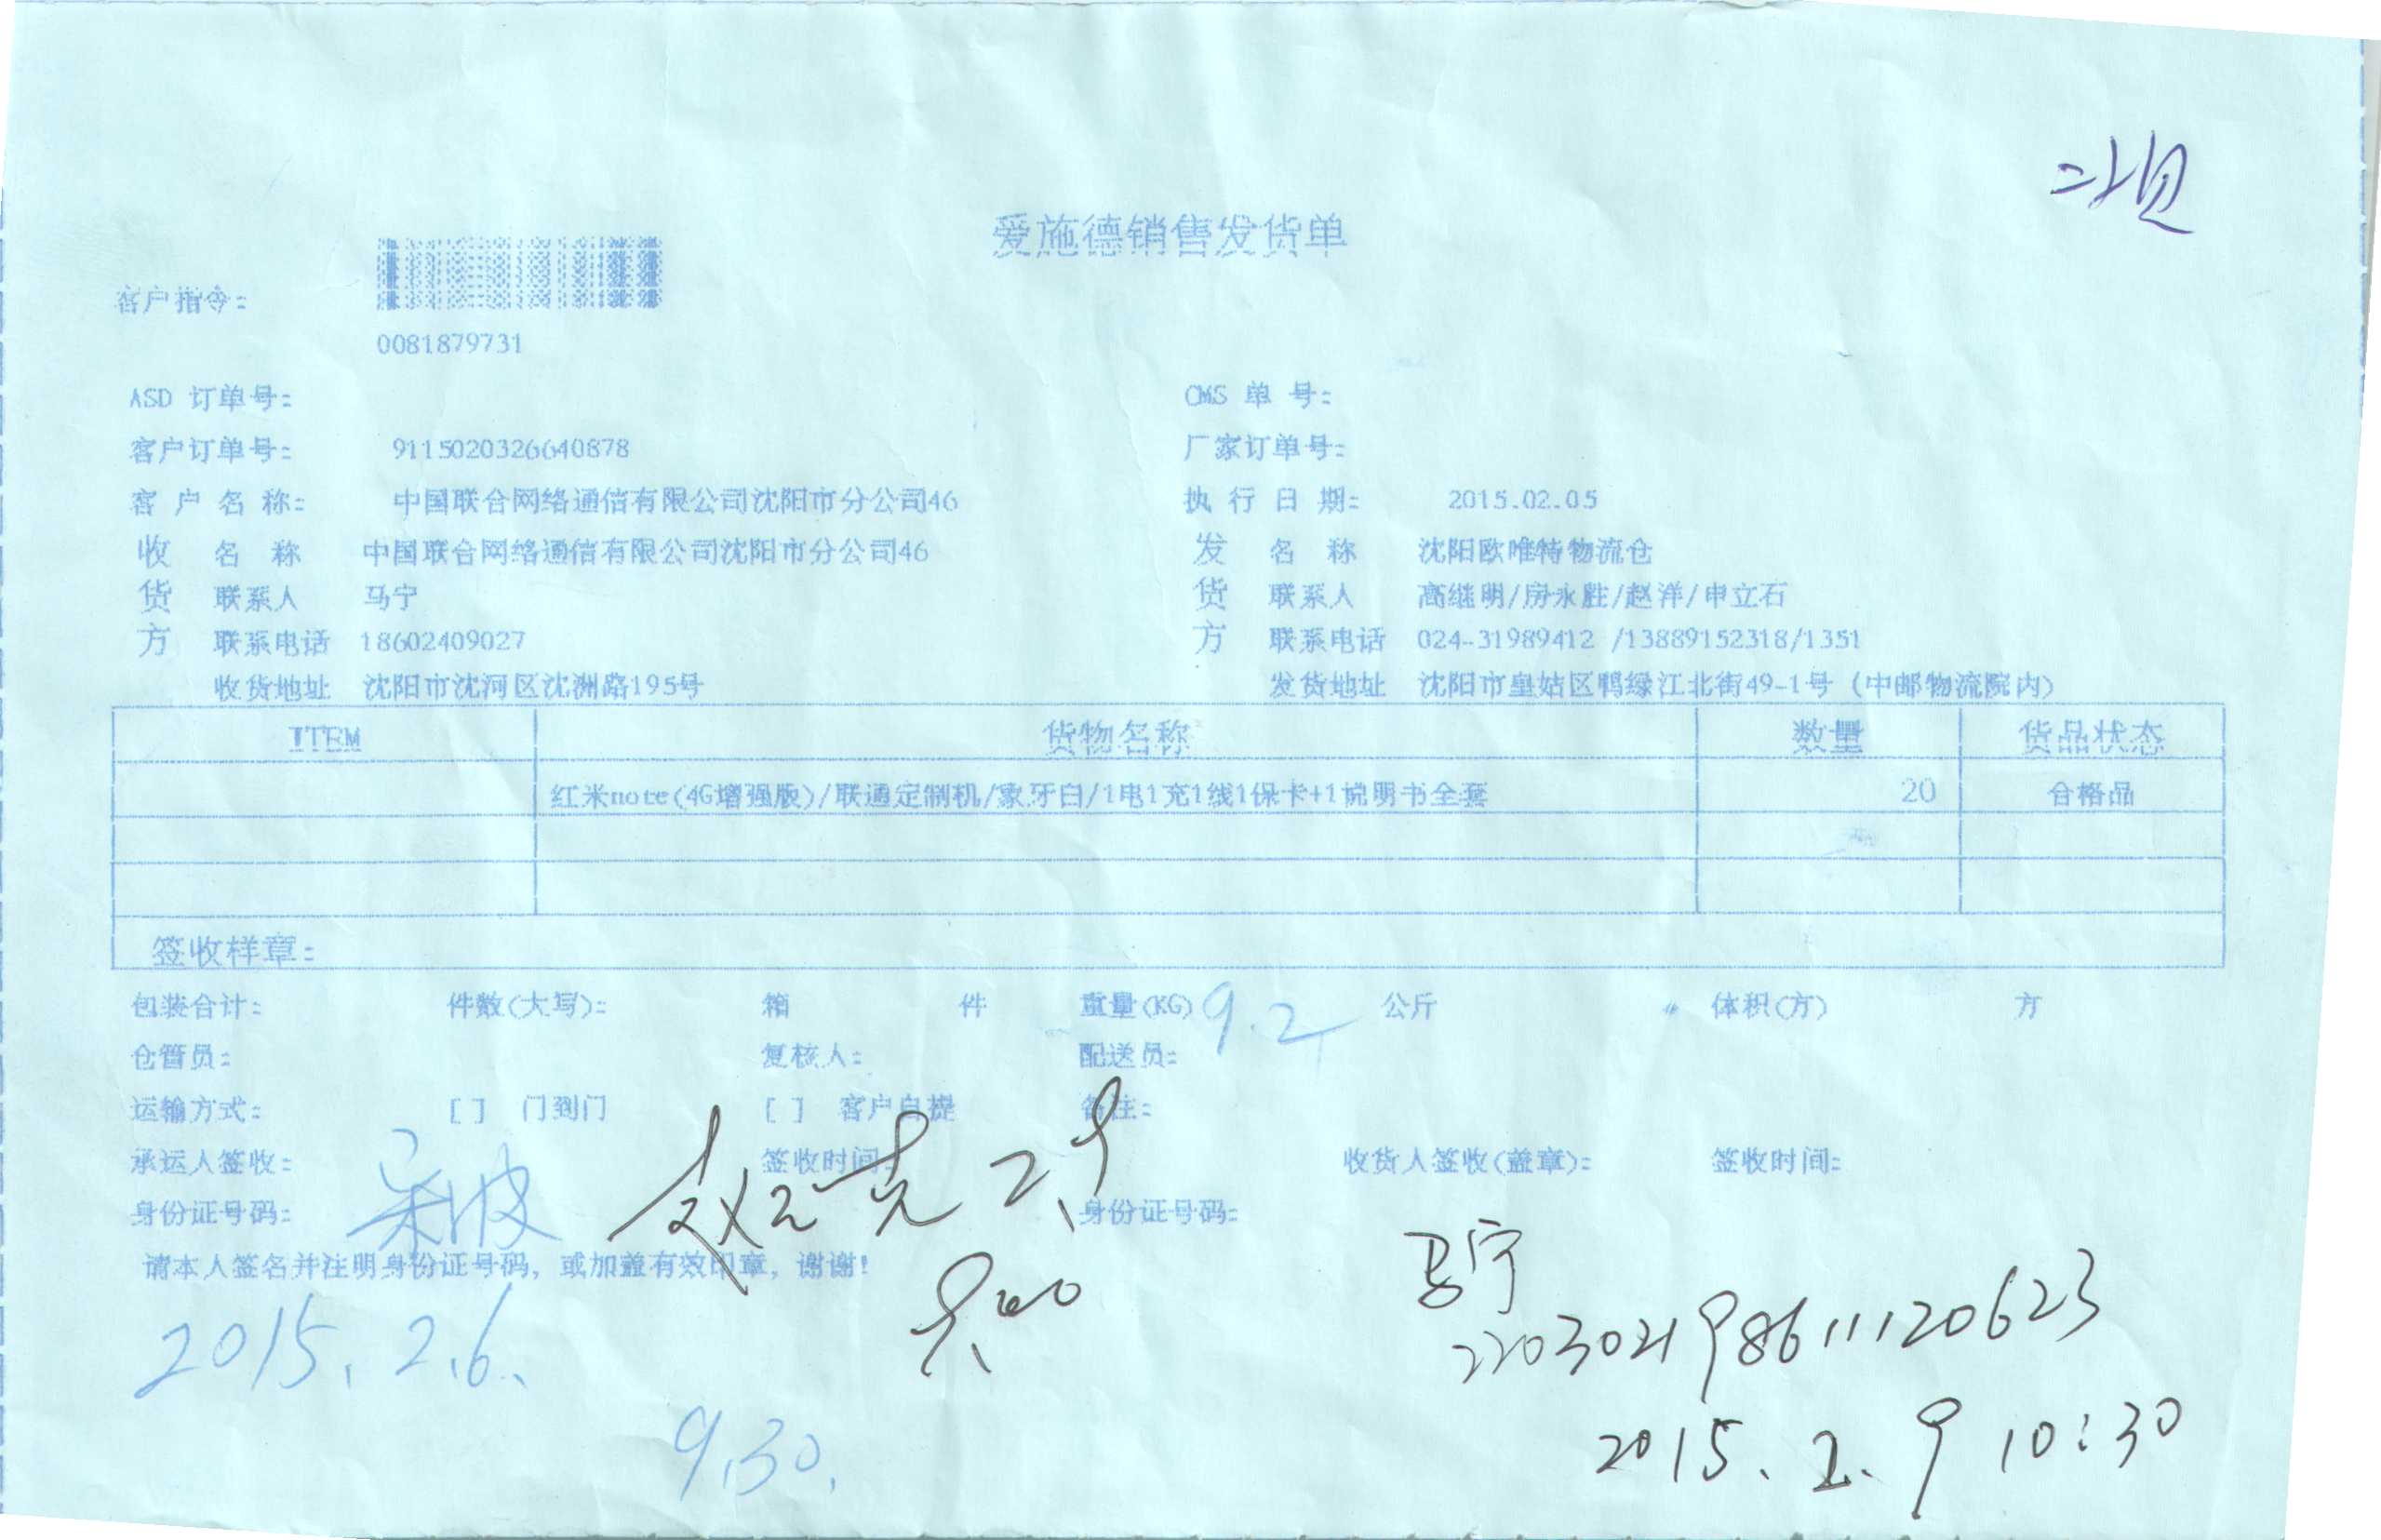 爱施德销售发货单
客户指令:
0081879731
ASD 订单号: CMS 单 号:
客户订单号: 9115020326640878 厂家订单号:
客 户 名 称: 中国联合网络通信有限公司沈阳市分公司46 执 行 日 期: 2015.02.05
收 名 称 中国联合网络通信有限公司沈阳市分公司46 发 名 称 沈阳欧唯特物流仓
货 联系人 马宁 货 联系人 高继明/房永胜/赵洋/申立石
方 联系电话 18602409027 方 联系电话 024-31989412 /13889152318/1351
收货地址 沈阳市沈河区沈洲路195号 发货地址 沈阳市皇姑区鸭绿江北街49-1号 (中邮物流院内)
ITEM 货物名称 数量 货品状态
红米note(4G增强版)/联通定制机/象牙白/1电1充1线1保卡+1说明书全套 20 合格品
签收样章:
包装合计: 件数(大写): 箱 件 重量(KG) 9.2 公斤 体积(方) 方
仓管员: 复核人: 配送员:
运输方式: [ ] 门到门 [ ] 客户自提 备注:
承运人签收: 签收时间: 2.9 收货人签收(盖章): 签收时间:
身份证号码: 宋波 身份证号码:
请本人签名并注明身份证号码, 或加盖有效印章, 谢谢!
马宁
220302198611120623
2015.2.6.
9.30.
2015.2.9 10:30